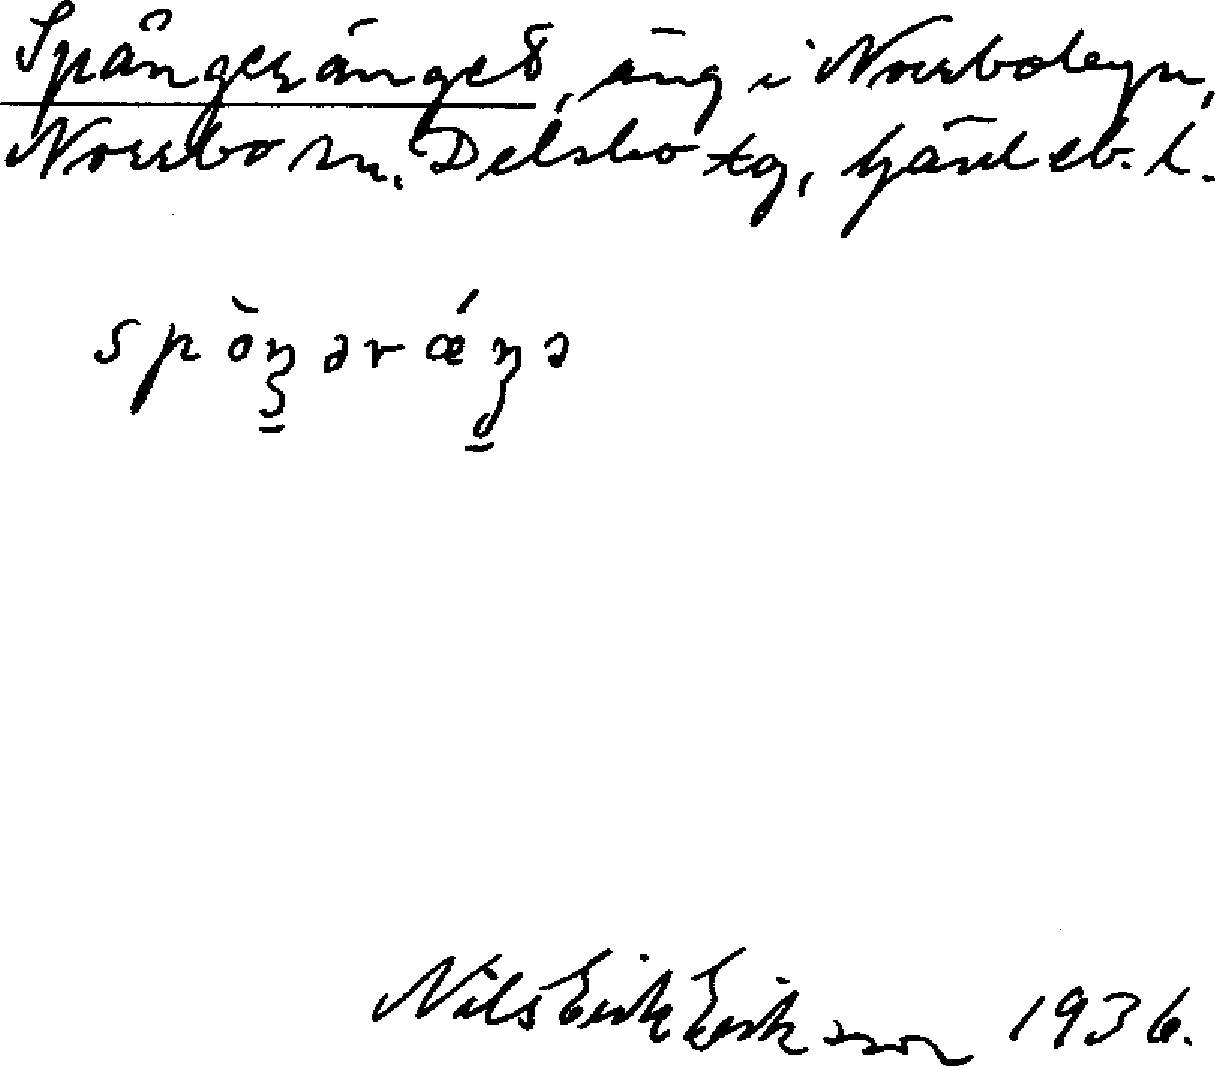 Spångeränget, äng i Norrbobyn,
Norrbo sn. Delsbo tg, Gävleb. l.
spòŋərǽŋə
Nils Erik Eriksson 1936.